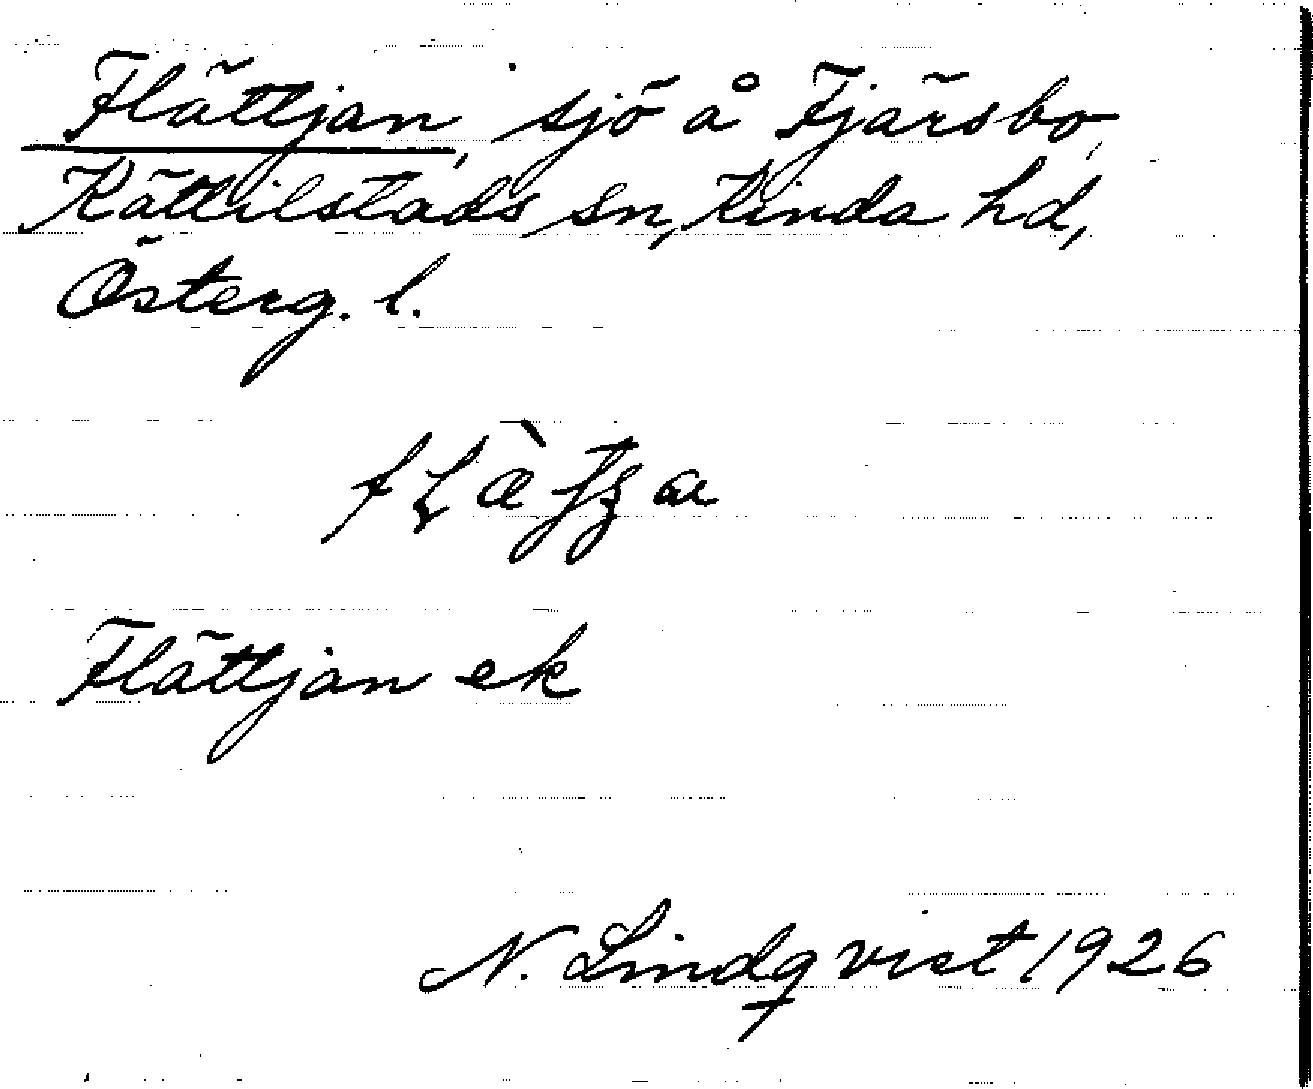 Flättjan, sjö å Fjärsbo,
Kättilstads sn, Kinda hd,
Österg. l.
Flättjan ek
N. Lindqvist 1926